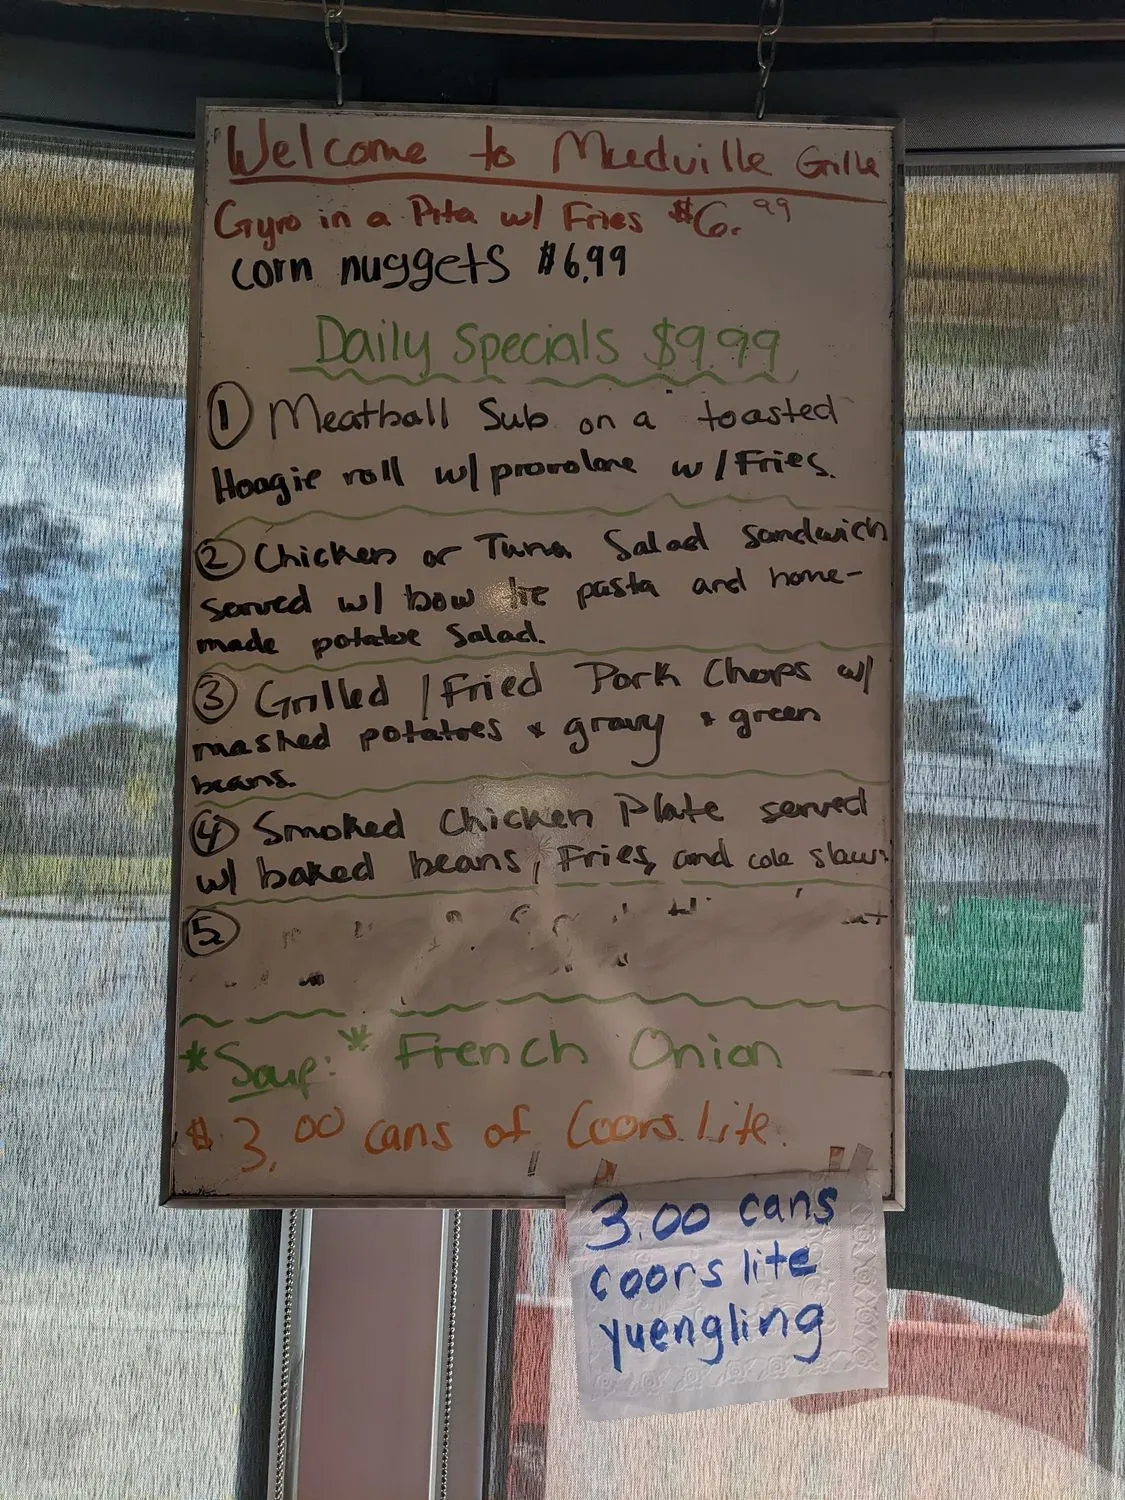 Welcome to Muedville Grille
Gyro in a Pita w/ Fries $6.99
corn nuggets $6.99
Daily Specials $9.99
① Meatball Sub on a toasted
Hoagie roll w/ provolone w/ Fries.
② Chicken or Tuna Salad sandwich
served w/ bow tie pasta and home-
made potatoe Salad.
③ Grilled / Fried Pork Chops w/
mashed potatoes & gravy & green
beans.
④ Smoked Chicken Plate served
w/ baked beans, Fries, and cole slaw.
⑤
*Soup:* French Onion
$3.00 cans of Coors lite.
3.00 cans
coors lite
yuengling